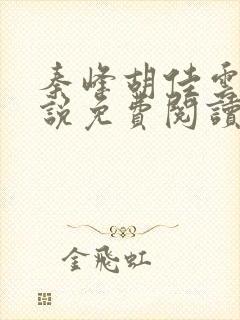 秦峰胡佳雲
說免費閱讀
金飛虹